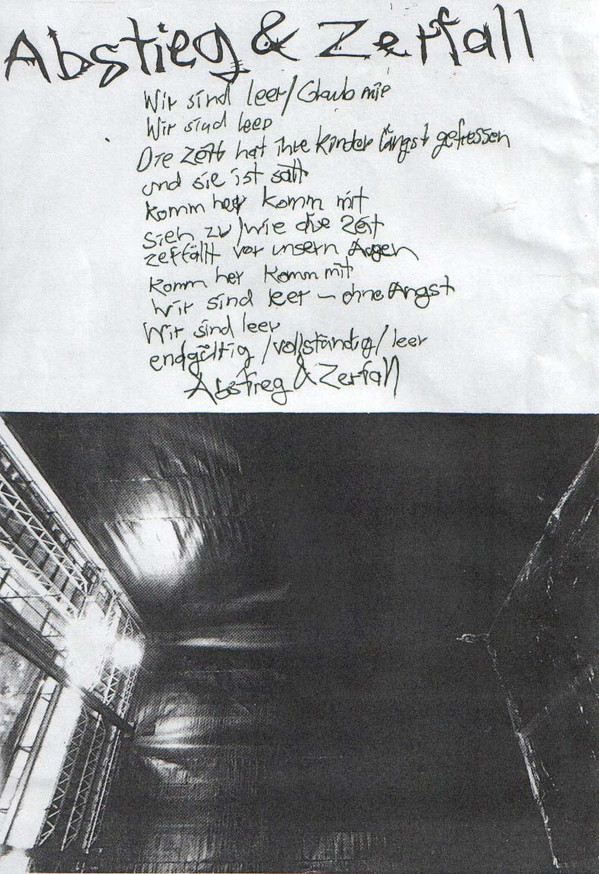 Abstieg & Zerfall
Wir sind leer / Glaub mir
Wir sind leer
Die Zeit hat ihre Kinder längst gefressen
und sie ist satt
komm her komm mit
Sieh zu / wie die Zeit
zerfällt vor unsern Augen
komm her komm mit
Wir sind leer – ohne Angst
Wir sind leer
endgültig / vollständig / leer
Abstieg & Zerfall